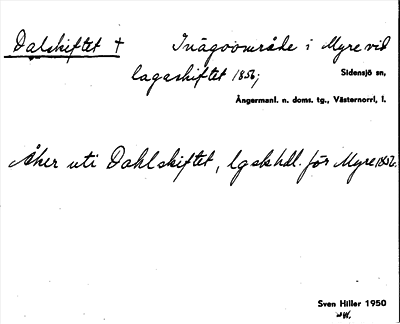 Dalskiftet † Inägoområde i Myre vid
lagaskiftet 1856;
Sidensjö sn,
Ångermanl. n. doms. tg., Västernorrl, l.
Åker uti Dahlskiftet, lgskhdl. för Myre 1856.
Sven Hiller 1950